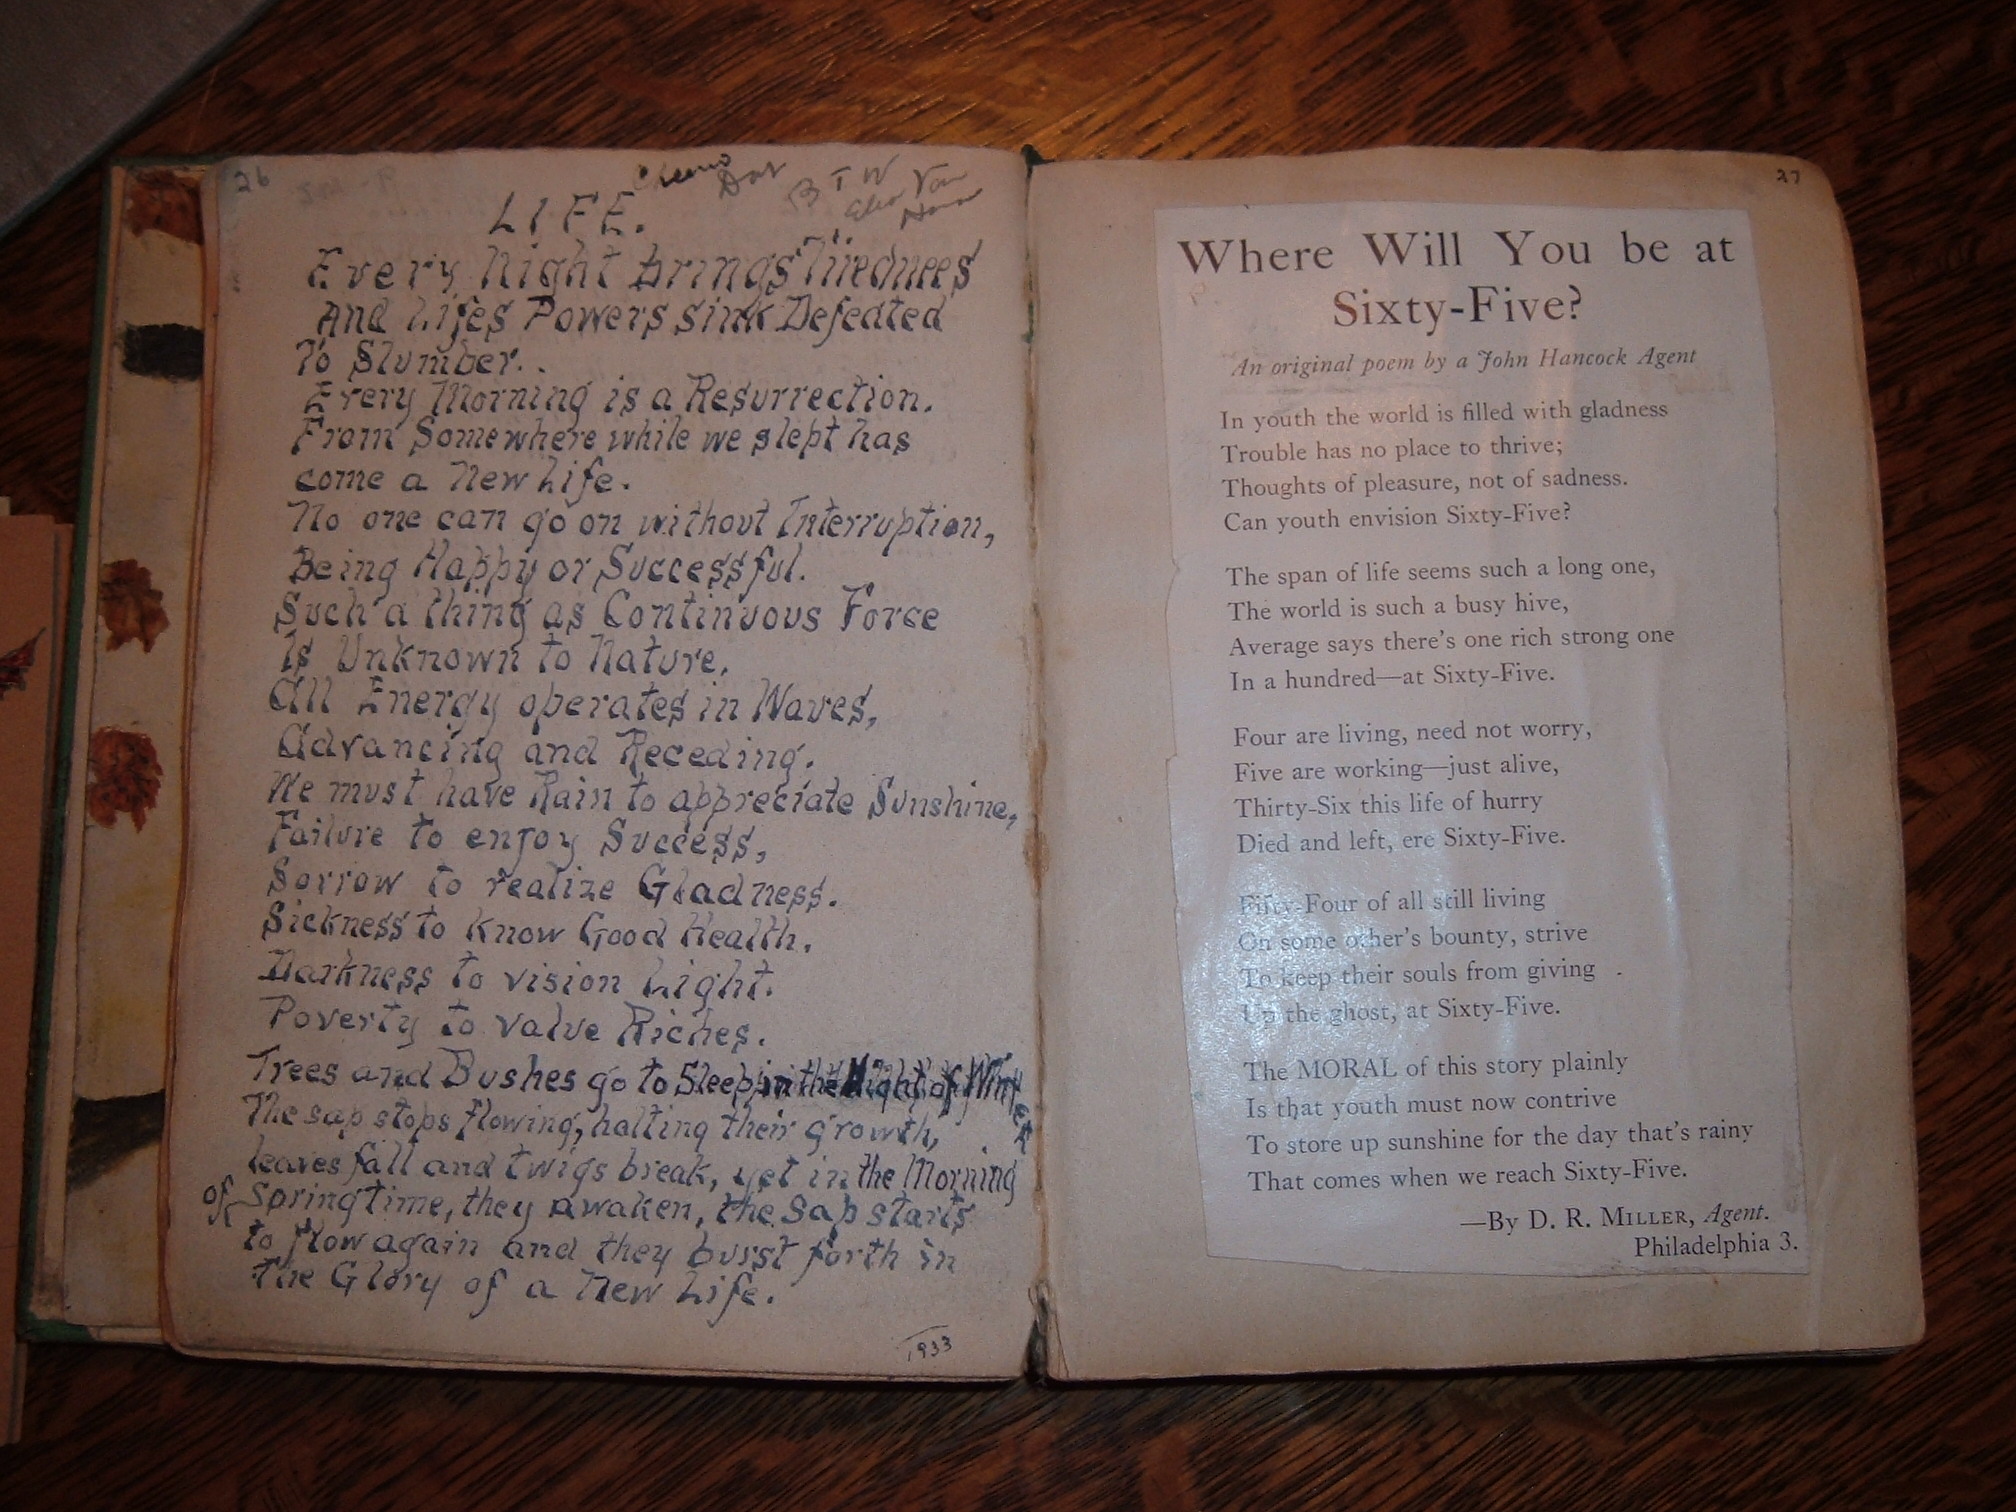 26
LIFE.
Every Night brings Tiredness
And Lifes Powers sink Defeated
To Slumber..
Every Morning is a Resurrection.
From Somewhere while we slept has
come a New Life.
No one can go on without Interruption,
Being Happy or Successful.
Such a thing as Continuous Force
Is Unknown to Nature.
All Energy operates in Waves,
Advancing and Receding.
We must have Rain to appreciate Sunshine,
Failure to enjoy Success,
Sorrow to realize Gladness.
Sickness to know Good Health.
Darkness to vision Light.
Poverty to value Riches.
Trees and Bushes go to Sleep in the Night of Winter
The sap stops flowing, halting their growth,
leaves fall and twigs break, yet in the Morning
of Springtime, they awaken, the Sap starts
to flow again and they burst forth in
The Glory of a New Life.
1933
27
Where Will You be at
Sixty-Five?
An original poem by a John Hancock Agent
In youth the world is filled with gladness
Trouble has no place to thrive;
Thoughts of pleasure, not of sadness.
Can youth envision Sixty-Five?
The span of life seems such a long one,
The world is such a busy hive,
Average says there's one rich strong one
In a hundred—at Sixty-Five.
Four are living, need not worry,
Five are working—just alive,
Thirty-Six this life of hurry
Died and left, ere Sixty-Five.
Fifty-Four of all still living
On some other's bounty, strive
To keep their souls from giving
Up the ghost, at Sixty-Five.
The MORAL of this story plainly
Is that youth must now contrive
To store up sunshine for the day that's rainy
That comes when we reach Sixty-Five.
—By D. R. MILLER, Agent.
Philadelphia 3.